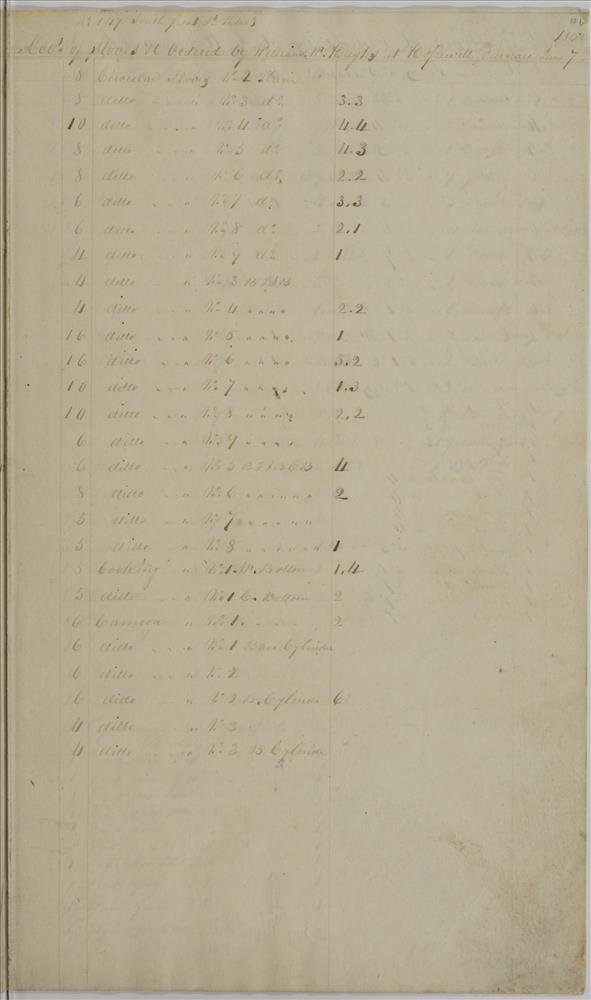 No 147 South front St Philada
Acct of Stoves &c Ordered by William W. Hughs at Hopewell Furnace June 7th
8 Circular Stoves No 2 Plain
8 ditto " No 3 do 3.3
10 ditto " No 4 do 4.4
8 ditto " No 5 do 4.3
8 ditto " No 6 do 2.2
6 ditto " No 7 do 3.3
6 ditto " No 8 do 2.1
4 ditto " No 9 do 1
4 ditto " No 3
4 ditto " No 4 " " " " 2.2
16 ditto " No 5 " " " " 1
16 ditto " No 6 " " " " 5.2
10 ditto " No 7 " " " " 1.3
10 ditto " No 8 " " " " 2.2
6 ditto " No 9 " " " "
6 ditto " No 5 4
8 ditto " No 6 " " " " " " 2
5 ditto " No 7 " " " " " "
5 ditto " No 8 " " " " " " 1
5 Cooking " No 1. Bottom 1.4
5 ditto " No 1 C. Bottom 2
6 Cannon " No 1. 2
6 ditto " No 1 Bare Cylinder
6 ditto " No 2
6 ditto " No 2 B. Cylinder 6
4 ditto " No 3
4 ditto " No 3 B Cylinder